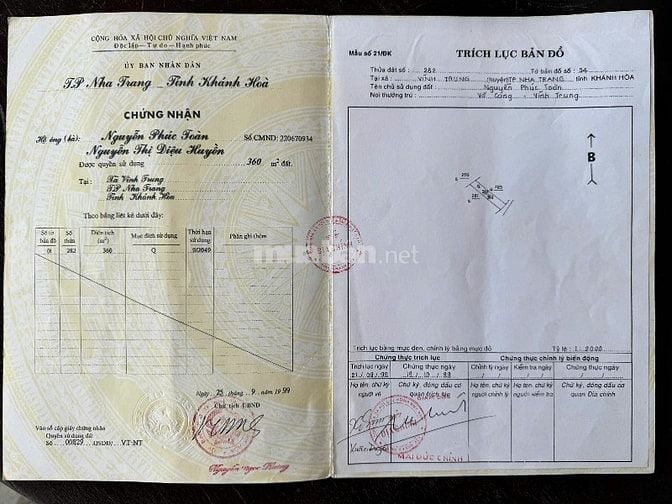 CỘNG HÒA XÃ HỘI CHỦ NGHĨA VIỆT NAM
Độc lập - Tự do - Hạnh phúc
ỦY BAN NHÂN DÂN
T.P Nha Trang _ Tỉnh Khánh Hoà
CHỨNG NHẬN
Hộ ông (bà) Nguyễn Phúc Toàn Số CMND: 220670934
Nguyễn Thị Diệu Huyền
Được quyền sử dụng 360 m² đất.
Tại: Xã Vĩnh Trung
TP Nha Trang
Tỉnh Khánh Hòa
Theo bảng liệt kê dưới đây:
Số tờ bản đồ Số thửa Diện tích (m²) Mục đích sử dụng Thời hạn sử dụng Phần ghi thêm
01 282 360 Q
Ngày 25 tháng 9 năm 1999
Chủ tịch UBND
Vào sổ cấp giấy chứng nhận
Quyền sử dụng đất
Số 00829 /QSDĐ/ VT-NT
Nguyễn Ngọc
Mẫu số 21/ĐK
TRÍCH LỤC BẢN ĐỒ
Thửa đất số: 282 Tờ bản đồ số: 34
Tại xã: VĨNH TRUNG huyện TP. NHA TRANG tỉnh KHÁNH HÒA
Tên chủ sử dụng đất: Nguyễn Phúc Toàn
Nơi thường trú: Võ Cang, Vĩnh Trung
B
282
muaban.net
Trích lục bằng mực đen, chỉnh lý bằng mực đỏ Tỷ lệ: 1: 2000
Chứng thực trích lục Chứng thực chỉnh lý biến động
Trích lục ngày Chứng thực ngày Chỉnh lý ngày Kiểm tra ngày Chứng thực ngày
Họ tên, chữ ký người vẽ Chữ ký, đóng dấu cơ quan Họ tên, chữ ký người chỉnh lý Họ tên, chữ ký người kiểm tra Chữ ký, đóng dấu cơ quan Địa chính
MAI ĐỨC CHÍNH